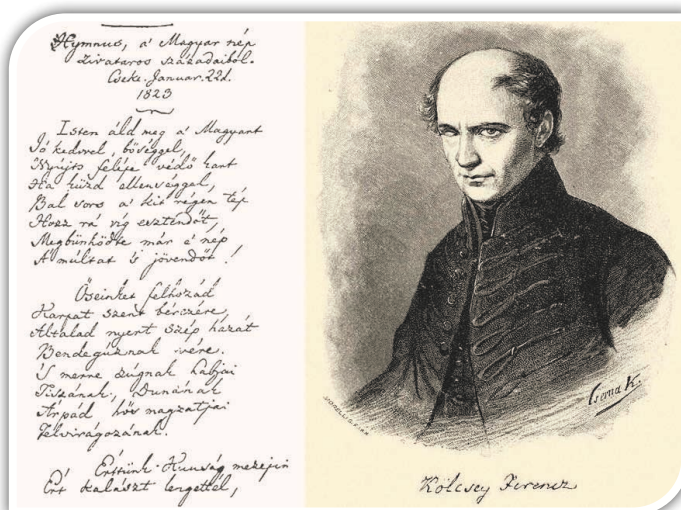 Hymnus, a' Magyar nép
zivataros századaiból.
Cseke. Januar. 22d.
1823
Isten áld meg a' Magyart
Jó kedvvel, bőséggel,
Nyújts feléje védő kart
Ha küzd ellenséggel,
Bal sors a' kit régen tép
Hozz rá víg esztendőt,
Megbünhödte már e' nép
A' múltat 's jövendőt!
Őseinket felhozád
Kárpát szent bérczére,
Általad nyert szép hazát
Bendegúznak vére.
'S merre zúgnak habjai
Tiszának, Dunának
Árpád hős magzatjai
Felvirágozának.
Értünk Kunság mezejin
Ért kalászt lengettél,
Cserna K.
Kölcsey Ferencz